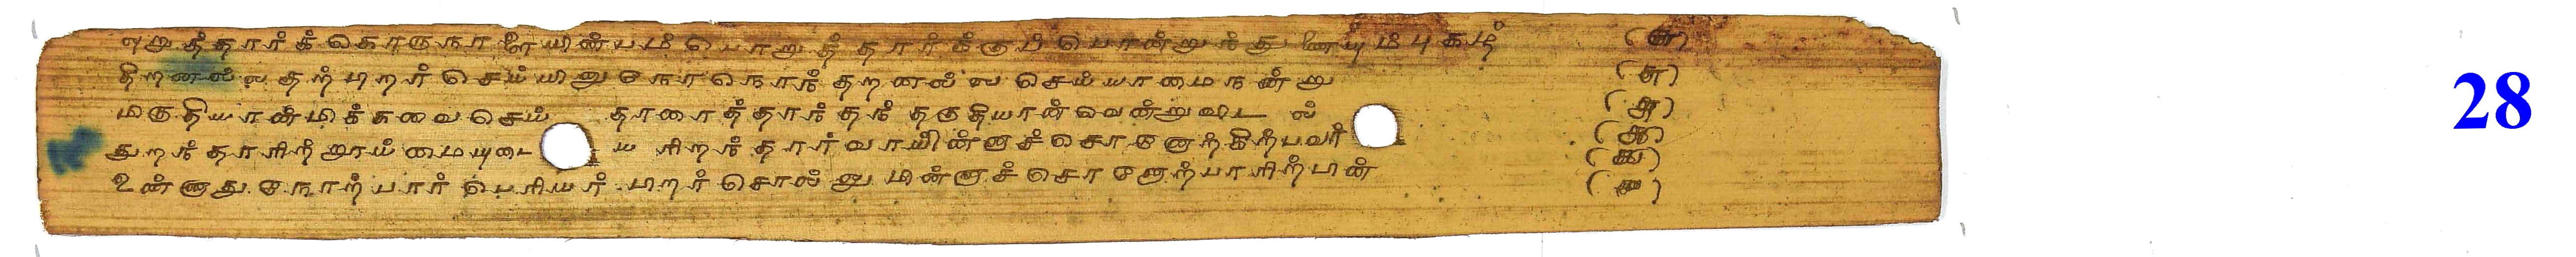 ஒறுத்தார்க் கொருநாளை யின்பம் பொறுத்தார்க்குப் பொன்றுந் துணையும் புகழ் (௬)
திறனல்ல தற்பிறர் செய்யினு நோநொந் தறனல்ல செய்யாமை நன்று (௭)
மிகுதியான் மிக்கவை செய் தாரைத்தாந் தந் தகுதியான் வென்றுவிட ல் (௮)
துறந்தாரிற் றூய்மையுடை ய ரிறந்தார்வா யின்னாச்சொ னோற்கிற்பவர் (௯)
உண்ணாது நோற்பார் பெரியர் பிறர் சொல்லு மின்னாச்சொ னோற்பாரிற் பின் (௰)
28